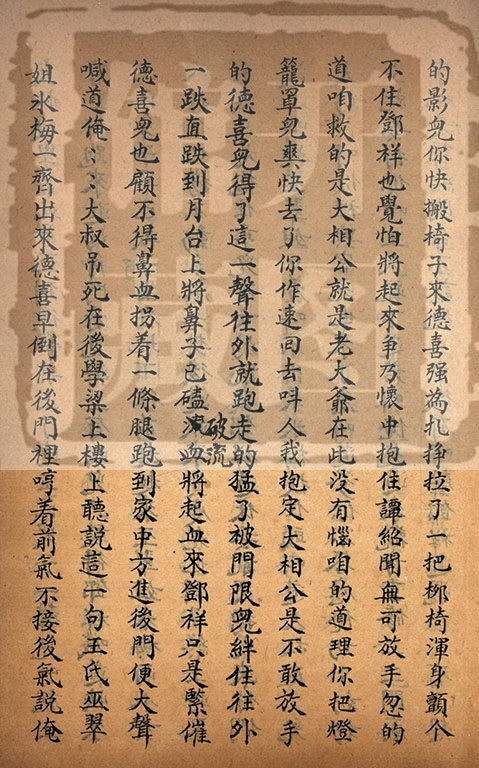 的影兒你快搬椅子來德喜强為扎挣拉了一把椰椅渾身顫个
不住鄧祥也覺怕將起來争乃懷中抱住譚紹聞無可放手忽的
道咱救的是大相公就是老大爺在此没有惱咱的道理你把燈
籠罩兒爽快去了你作速回去呌人我抱定大相公是不敢放手
的德喜兒得了這一聲往外就跑走的猛了被門限兒絆住往外
一跌直跌到月台上將鼻子已磕破流血將起血來鄧祥只是緊催
德喜兒也顧不得鼻血拐着一條腿跑到家中方進後門便大聲
喊道俺:::大叔吊死在後學梁上樓上聽説這一句王氏巫翠
姐氷梅一齊出來德喜早倒在後門裡哼着前氣不接後氣説俺